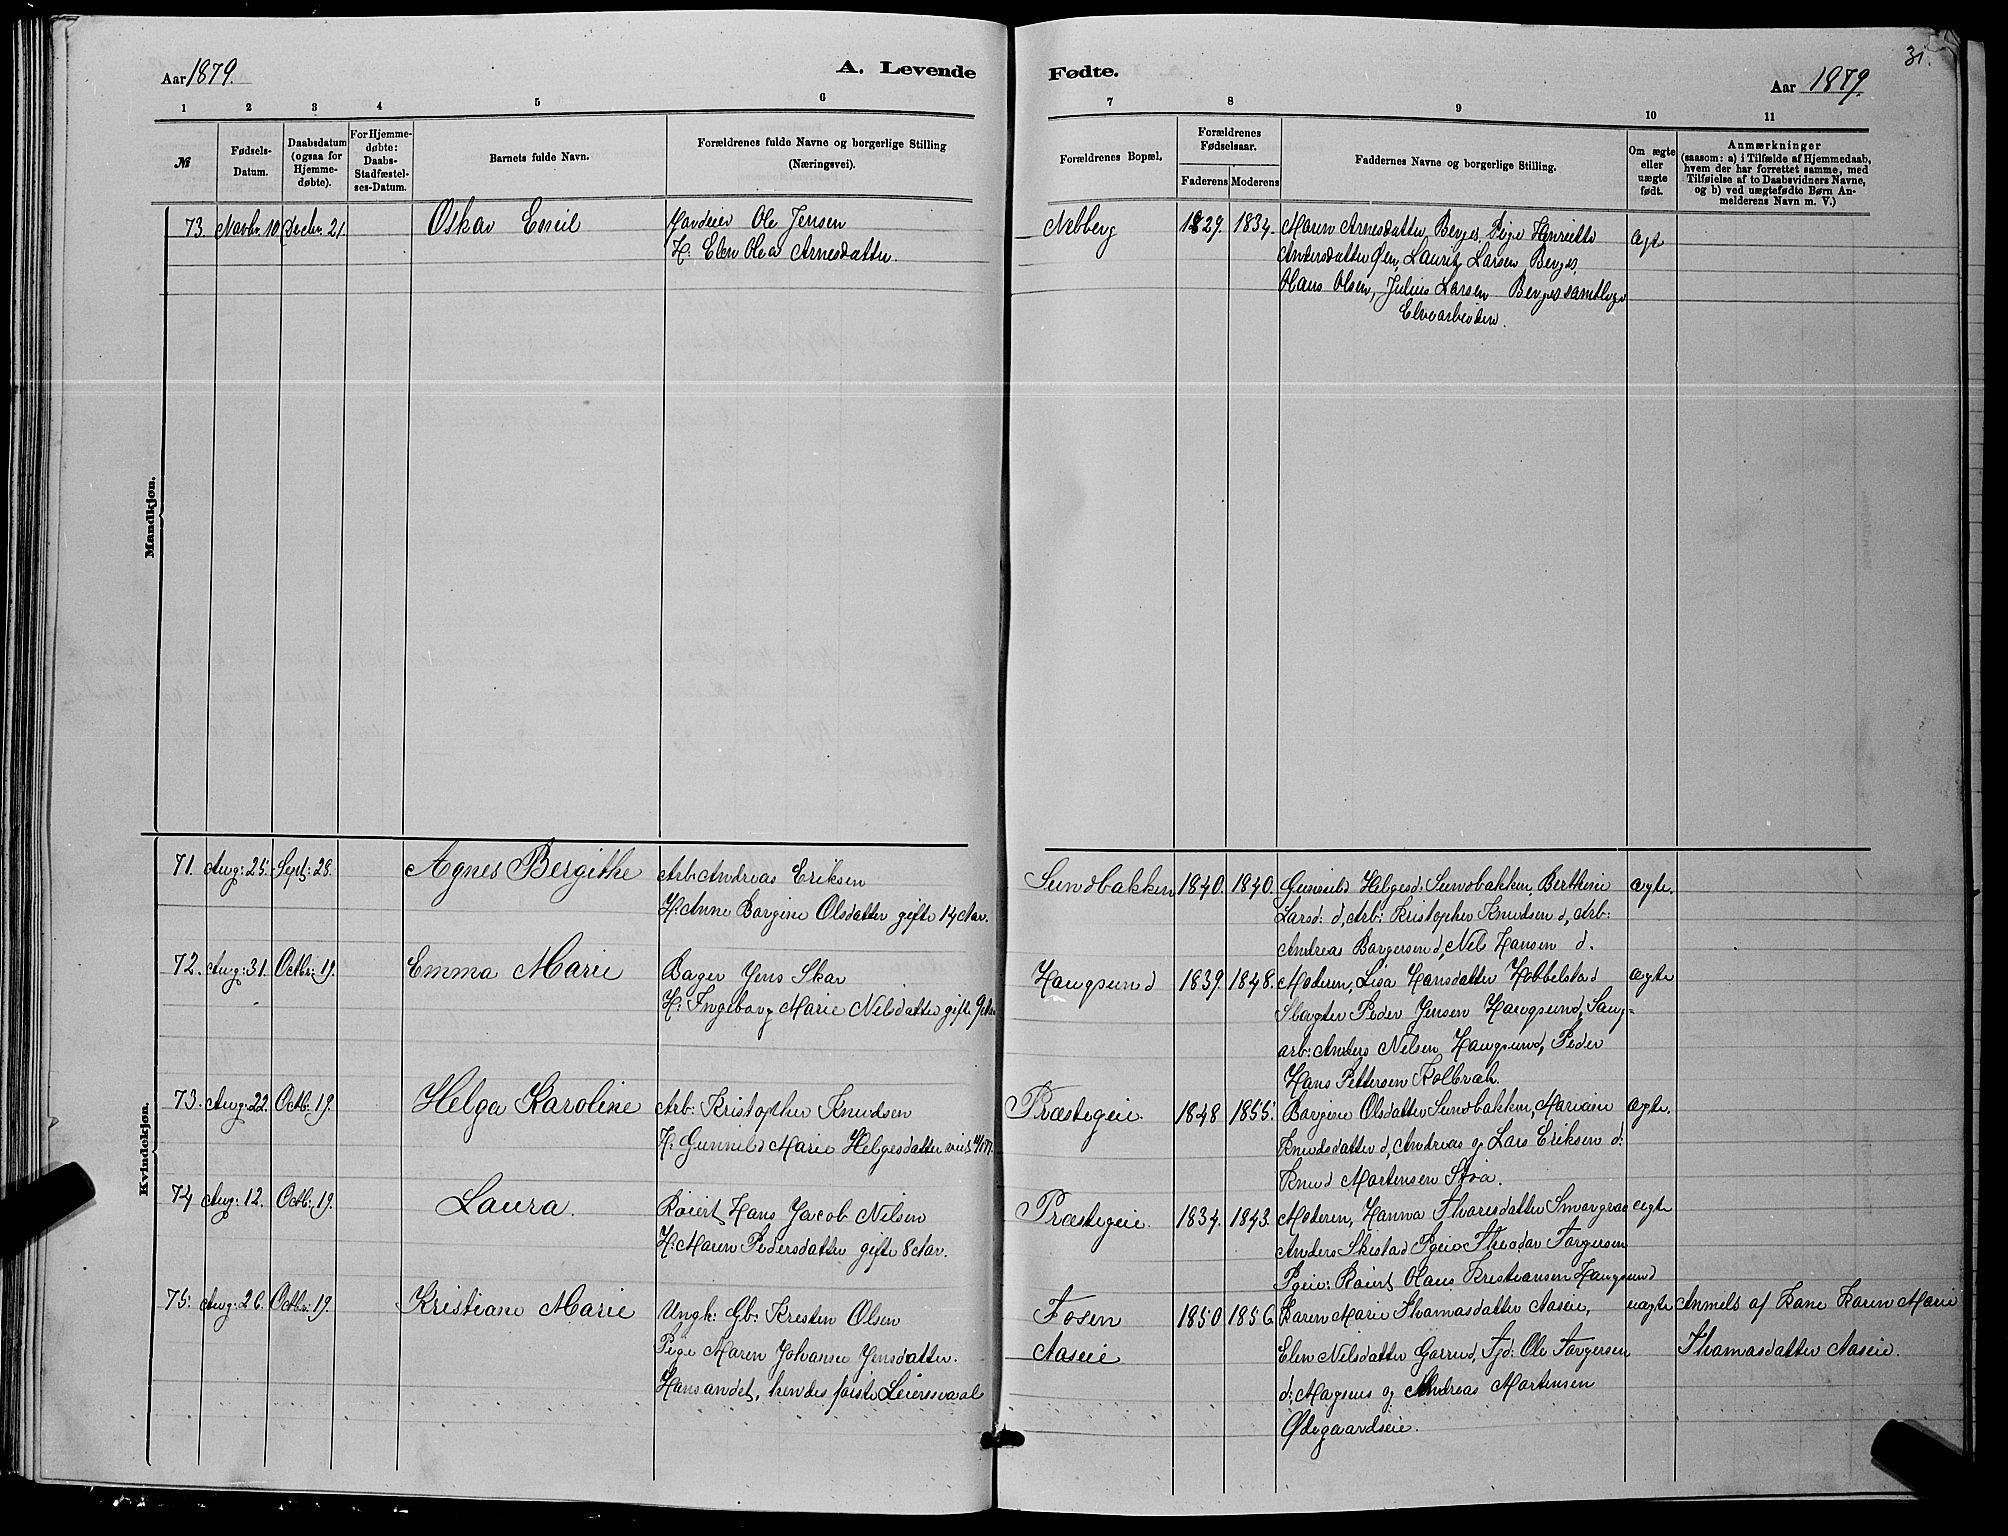 Aar 1879.
A. Levende
Fødte.
31.
Aar 1879.
1 2 3 4 5 6
7 8 9 10 11
№
Fødsels-
Datum.
Daabsdatum
(ogsaa for
Hjemme-
døbte).
For Hjemme-
døbte:
Daabs-
Stadfæstel-
ses-Datum.
Barnets fulde Navn.
Forældrenes fulde Navne og borgerlige Stilling
(Næringsvei).
Forældrenes Bopæl.
Forældrenes
Fødselsaar.
Faderens Moderens
Faddernes Navne og borgerlige Stilling.
Om ægte
eller
uægte
født.
Anmærkninger
(saasom: a) i Tilfælde af Hjemmedaab,
hvem der har forrettet samme, med
Tilføielse af to Daabsvidners Navne,
og b) ved uægtefødte Børn An-
melderens Navn m. V.)
Mandkjøn.
73. Novbr. 10 Decbr. 21 Oskar Emil
Gaardeier Ole Jensen
H. Elen Olea Arnesdatter.
Nebberg 1829. 1834. Maren Arnesdatter, Berges, Pige Henriette
Andersdatter Øen, Lauritz Larsen Berges,
Hans Olsen, Julius Larsen Berges samtlige
Elvearbeidere.
Ægte
Kvindekjøn.
71. Aug: 25. Sept: 28. Agnes Bergithe
Arb: Andreas Eriksen
H: Anne Borgine Olsdatter gifte 14 Aar.
Sundbakken 1840. 1840. Gunnild Helgesd: Sundbakken, Berthine
Larsd: d, Arb: Kristopher Knudsen d, Arb:
Andreas Borgersen d, Nels Hansen d.
ægte.
72. Aug: 31. Octbr: 19. Emma Marie
Bager Jens Skar
H: Ingeborg Marie Nelsdatter gifte 9 Aar
Haugsund 1839. 1848. Moderen, Lisa Hansdatter Hobbelstad
Slagter Peder Jensen Haugsund, Saug-
arb: Anders Nelsen Haugsund, Peder
Hans Pettersen Kolbræk.
ægte
73. Aug: 22. Octb: 19. Helga Karoline
Arb: Kristopher Knudsen
H: Gunnild Marie Helgesdatter viet
Præstegeie. 1848 1855. Borgine Olsdatter Sundbakken, Mariane
Knudsdatter d, Andreas og Lars Eriksen d:
Knud Mortensen Stva.
ægte.
74 Aug: 12. Octb: 19. Laura.
Reiert Hans Jacob Nilsen
H: Maren Pedersdatter gifte 8 Aar.
Præstegeie. 1834. 1843. Moderen, Hanna Thorisdatter Smørgrav
Anders Skistad Pgeie Theodor Torgersen
Pgeie: Reiert Hans Kristiansen Haugsund
ægte
75: Aug: 26. Octbr: 19. Kristiane Marie
Ungk: Gb: Kresten Olsen
Pige Maren Johanne Jensdatter.
Hans andet, hendes første Leiersmaal
Fosen
Aaseie
1850 1856 Karen Marie Thomasdatter Aaseie,
Elen Nilsdatter Gorrud, Tjd: Ole Torgersen
d: Magnus og Andreas Mortensen
Ødegaardseie.
uægte Anmeldt af Kone Karen Marie
Thomasdatter Aaseie.